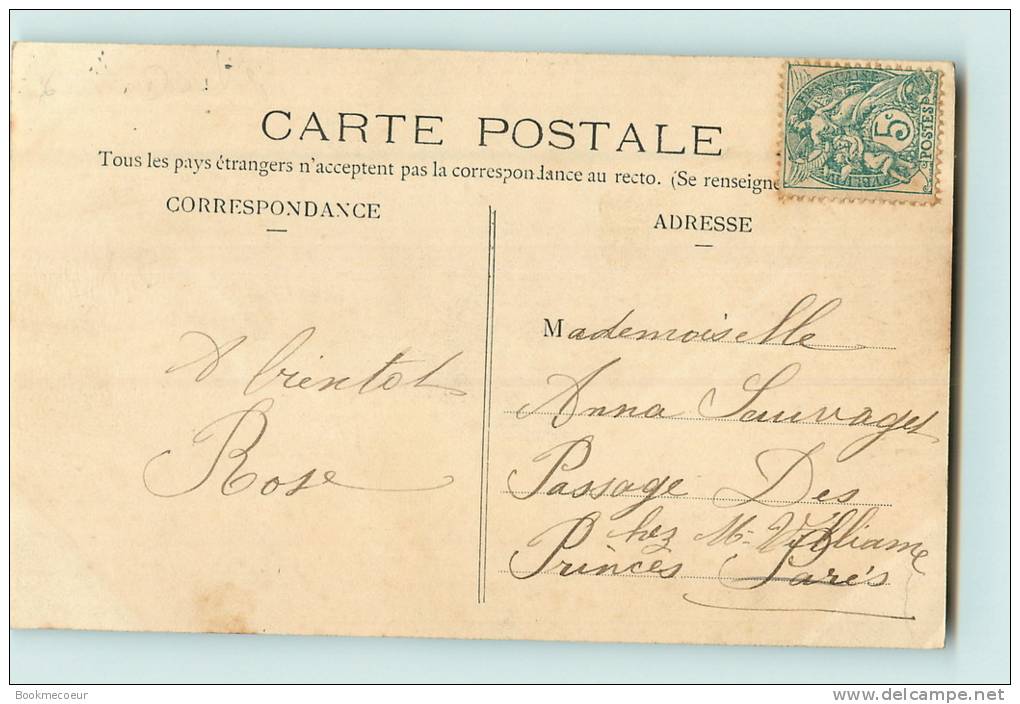 CARTE POSTALE
Tous les pays étrangers n'acceptent pas la correspondance au recto. (Se renseigne
CORRESPONDANCE
ADRESSE
A bientot
Rose
Mademoiselle
Anna Sauvaget
Passage Des
chez Mr Williame
Princes Paris
5c
POSTES
Bookmecoeur
www.delcampe.net